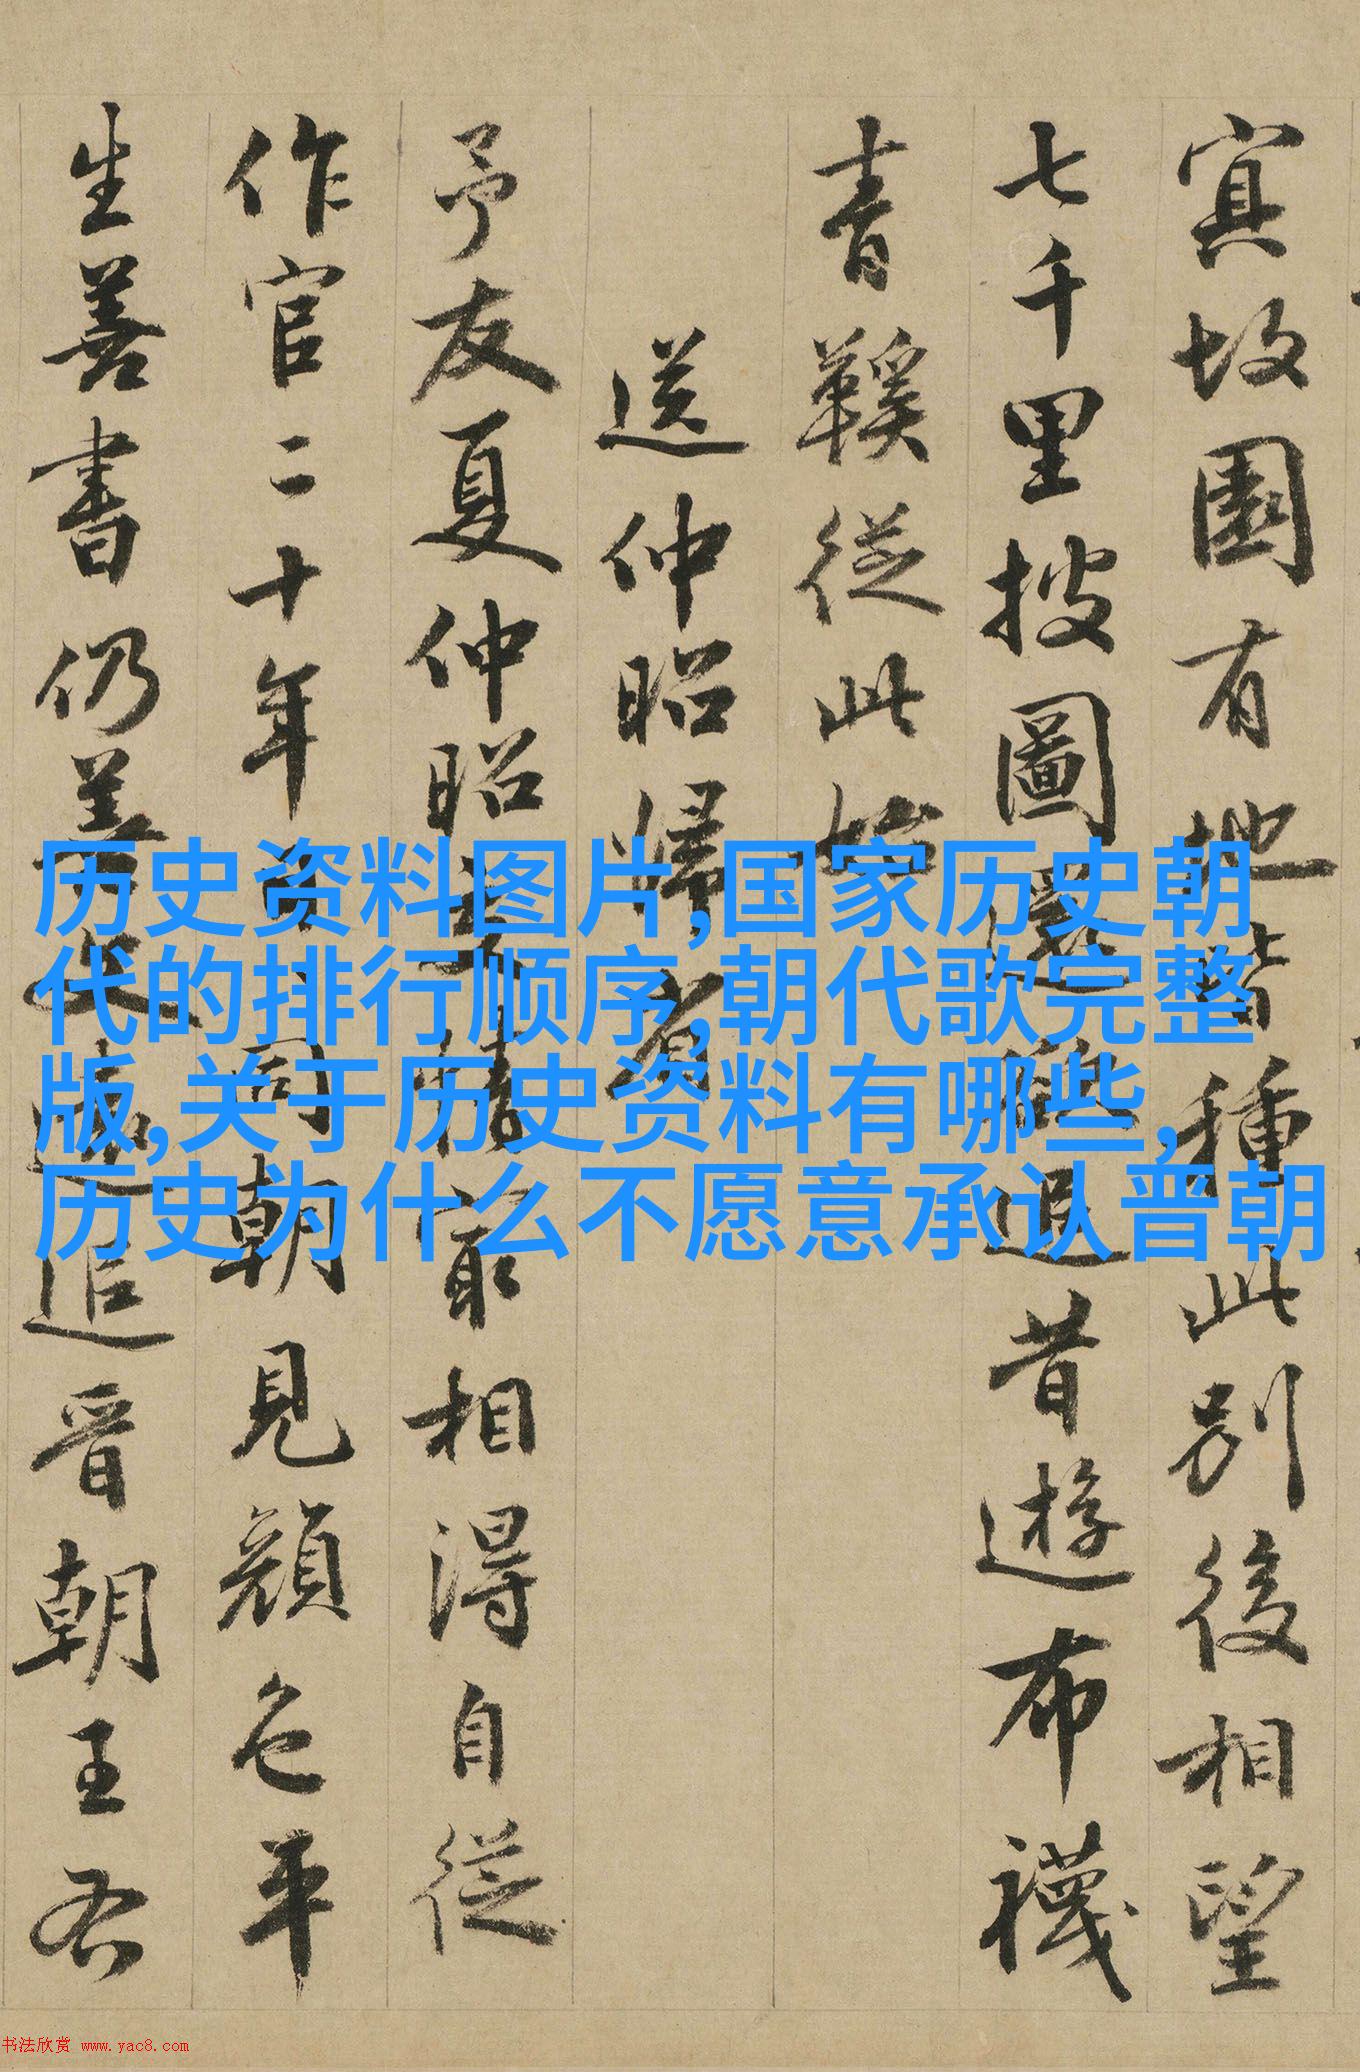 故園有地皆種此别後相望
七千里披圖還追昔遊布襪
青鞵從此始
送仲昭歸省
予友夏仲昭交情最相得自從
作官二十年同朝見顔色平
生善書仍善追晋朝王右
历史资料图片,国家历史朝
代的排行顺序,朝代歌完整
版,关于历史资料有哪些,
历史为什么不愿意承认晋朝
书法欣赏 www.yac8.com